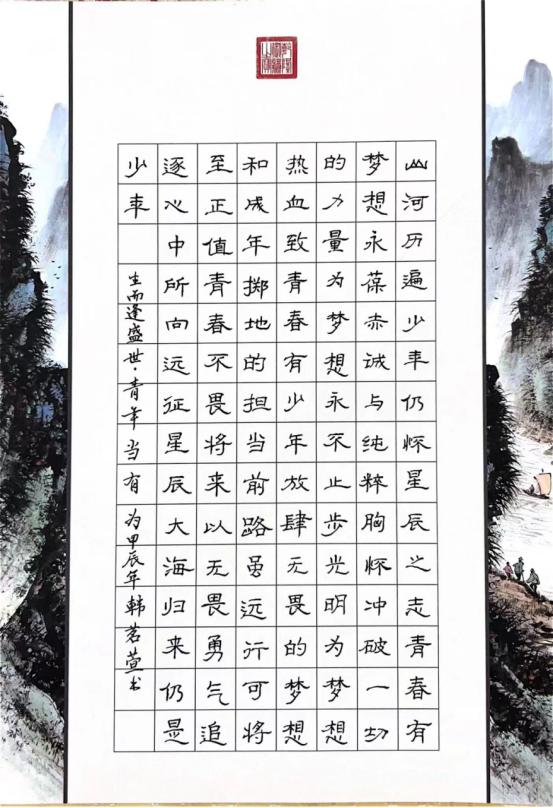 山河历遍少年仍怀星辰之志青春有
梦想永葆赤诚与纯粹胸怀冲破一切
的力量为梦想永不止步光明为梦想
热血致青春有少年放肆无畏的梦想
和成年掷地的担当前路虽远行可将
至正值青春不畏将来以无畏勇气追
逐心中所向远征星辰大海归来仍是
少年
生而逢盛世·青年当有为甲辰年韩茗萱书